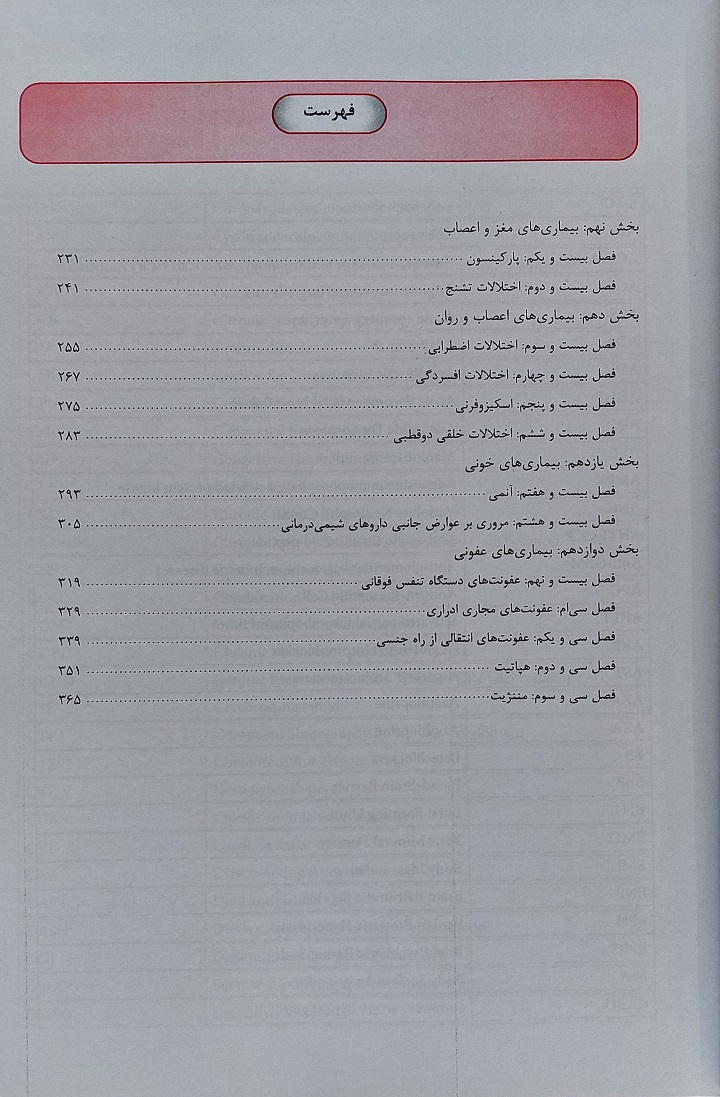 فهرست
بخش نهم: بیماری‌های مغز و اعصاب
فصل بیست و یکم: پارکینسون ........ ۲۳۱
فصل بیست و دوم: اختلالات تشنج ........ ۲۴۱
بخش دهم: بیماری‌های اعصاب و روان
فصل بیست و سوم: اختلالات اضطرابی ........ ۲۵۵
فصل بیست و چهارم: اختلالات افسردگی ........ ۲۶۷
فصل بیست و پنجم: اسکیزوفرنی ........ ۲۷۵
فصل بیست و ششم: اختلالات خلقی دوقطبی ........ ۲۸۳
بخش یازدهم: بیماری‌های خونی
فصل بیست و هفتم: آنمی ........ ۲۹۳
فصل بیست و هشتم: مروری بر عوارض جانبی داروهای شیمی‌درمانی ........ ۳۰۵
بخش دوازدهم: بیماری‌های عفونی
فصل بیست و نهم: عفونت‌های دستگاه تنفس فوقانی ........ ۳۱۹
فصل سی‌ام: عفونت‌های مجاری ادراری ........ ۳۲۹
فصل سی و یکم: عفونت‌های انتقالی از راه جنسی ........ ۳۳۹
فصل سی و دوم: هپاتیت ........ ۳۵۱
فصل سی و سوم: مننژیت ........ ۳۶۵